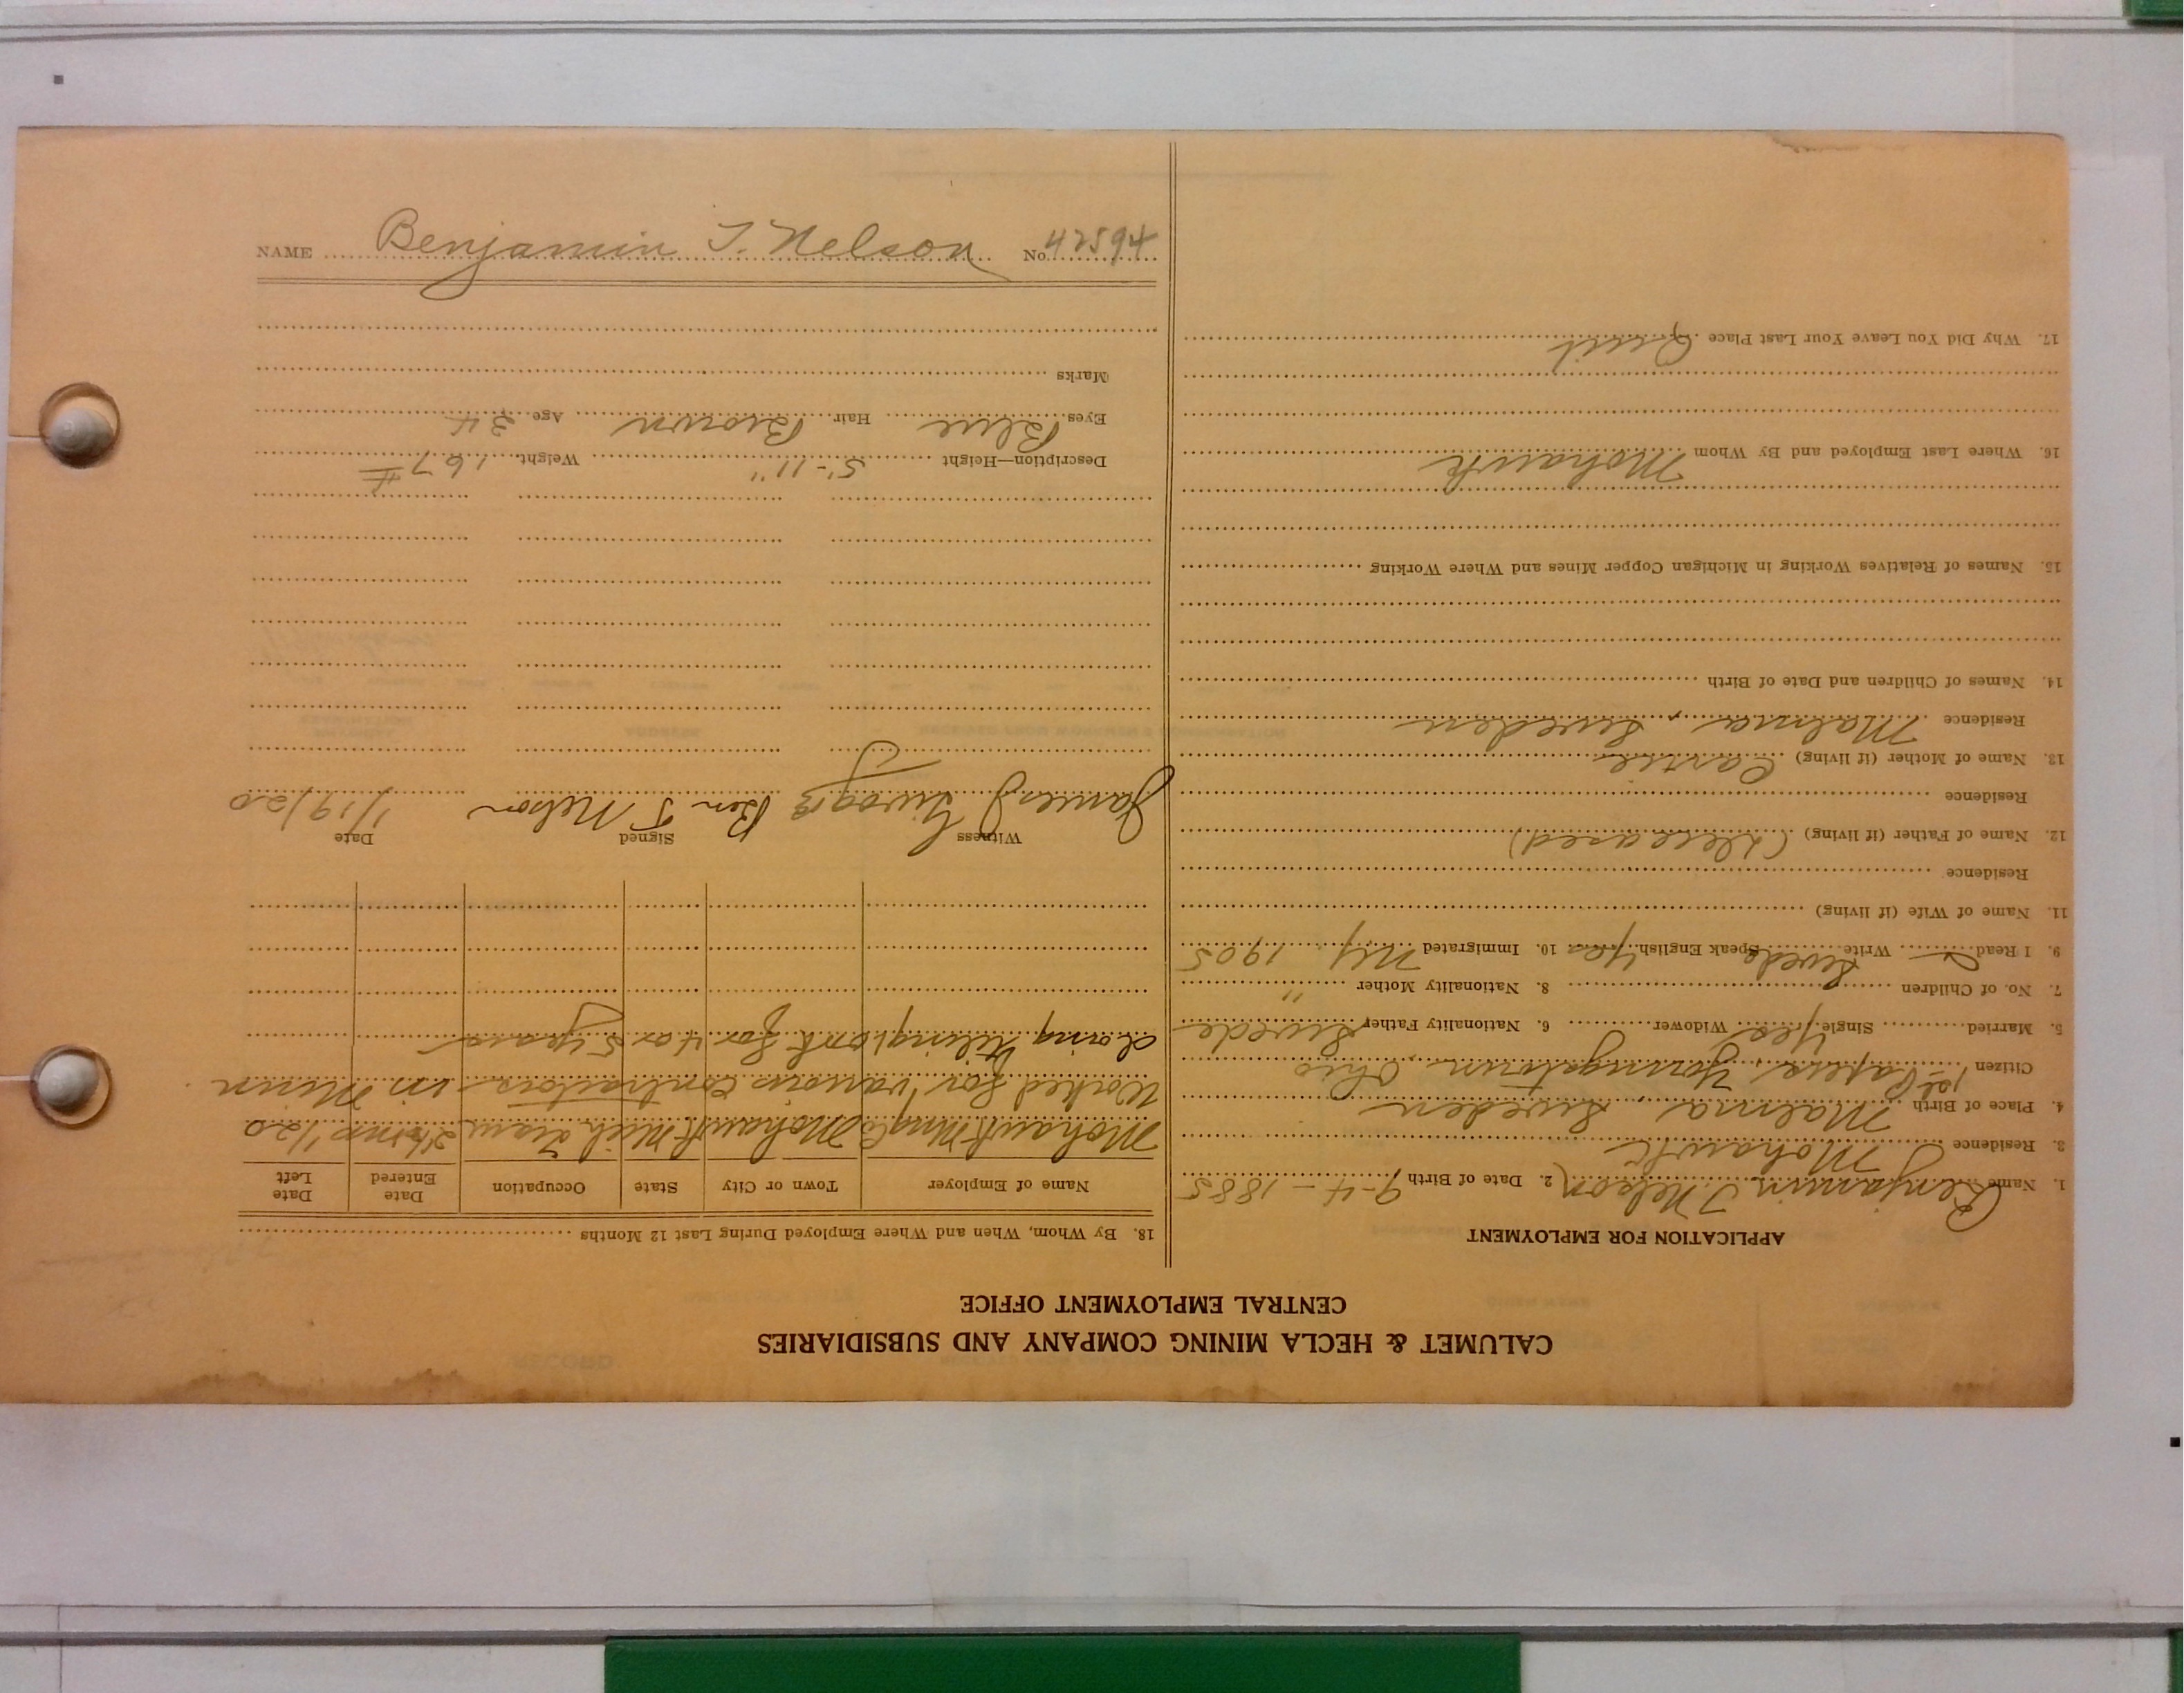 CALUMET & HECLA MINING COMPANY AND SUBSIDIARIES
CENTRAL EMPLOYMENT OFFICE
APPLICATION FOR EMPLOYMENT
1. Name Benjamin T. Nelson 2. Date of Birth 9-4-1885
3. Residence Mohawk
4. Place of Birth Malma, Sweden
Citizen 1st Papers, Youngstown, Ohio
5. Married Single Yes Widower 6. Nationality Father Swede
7. No. of Children 8. Nationality Mother "
9. I Read Write Swede Speak English Yes 10. Immigrated NY. 1905
11. Name of Wife (if living)
Residence
12. Name of Father (if living) (Deceased)
Residence
13. Name of Mother (if living) Carrie
Residence Malma, Sweden
14. Names of Children and Date of Birth
15. Names of Relatives Working in Michigan Copper Mines and Where Working
16. Where Last Employed and By Whom Mohawk
17. Why Did You Leave Your Last Place Quit
18. By Whom, When and Where Employed During Last 12 Months
Name of Employer Town or City State Occupation Date Entered Date Left
Mohawk Mng Co Mohawk Mich Tram 2½ mo 1/20
Worked for various contractors in Minn
doing for 4 or 5 years
Witness Signed Date
James Ben T Nelson 1/19/20
Description—Height 5'-11" Weight 167 #
Eyes Blue Hair Brown Age 34
Marks
NAME Benjamin T. Nelson No. 42594